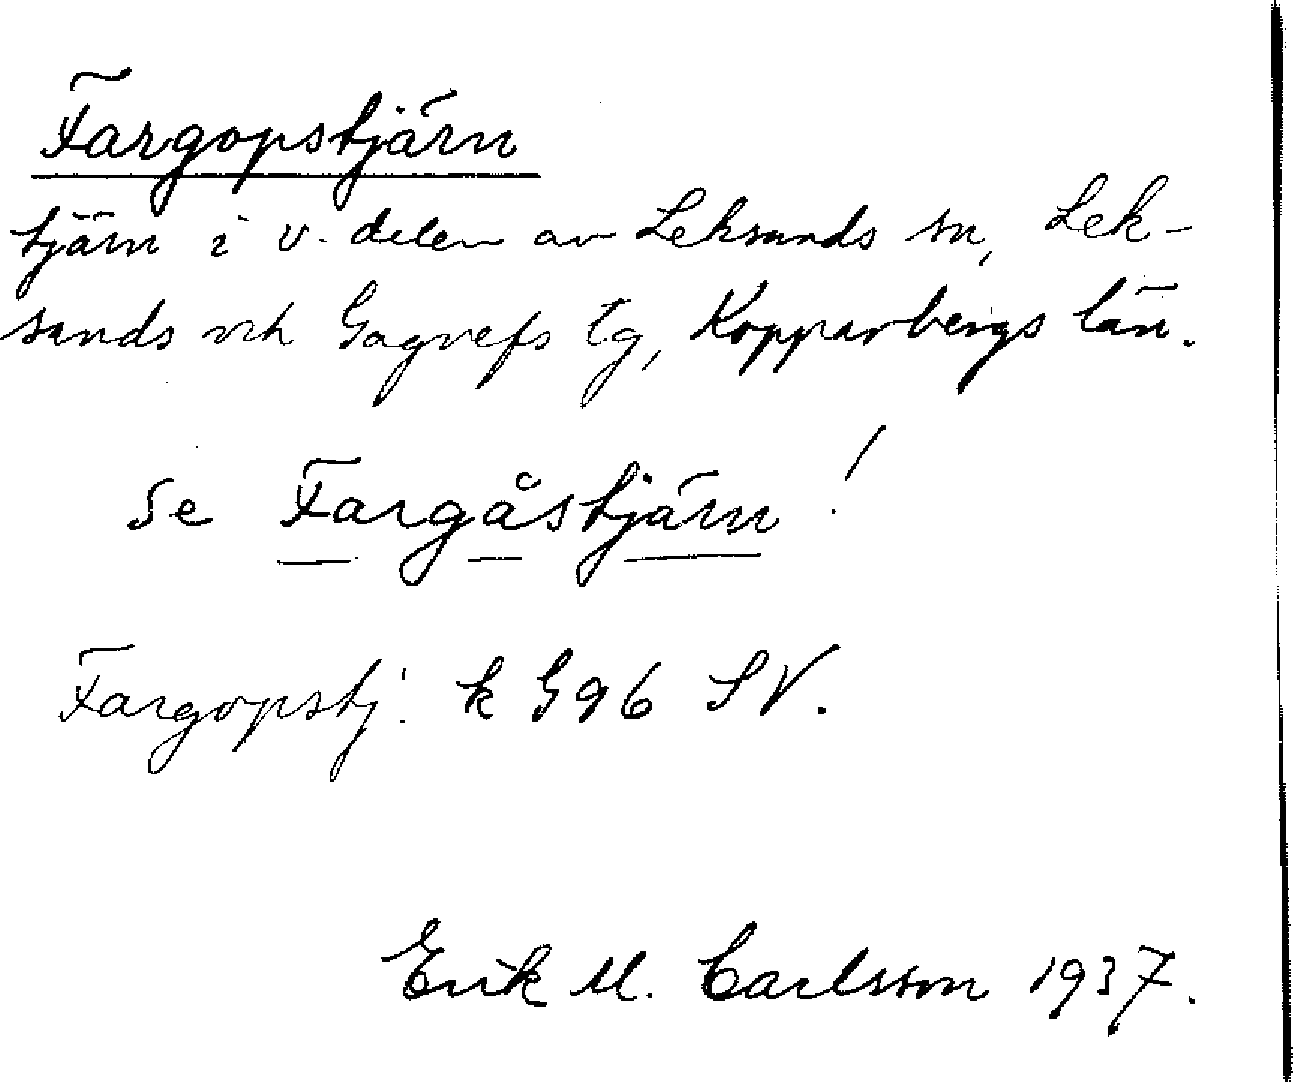 Fargopstjärn
tjärn i v. delen av Leksands sn, Lek-
sands och Gagnefs tg, Kopparbergs län.
Se Fargåstjärn!
Fargopstj: k G96 SV.
Erik M. Carlsson 1937.